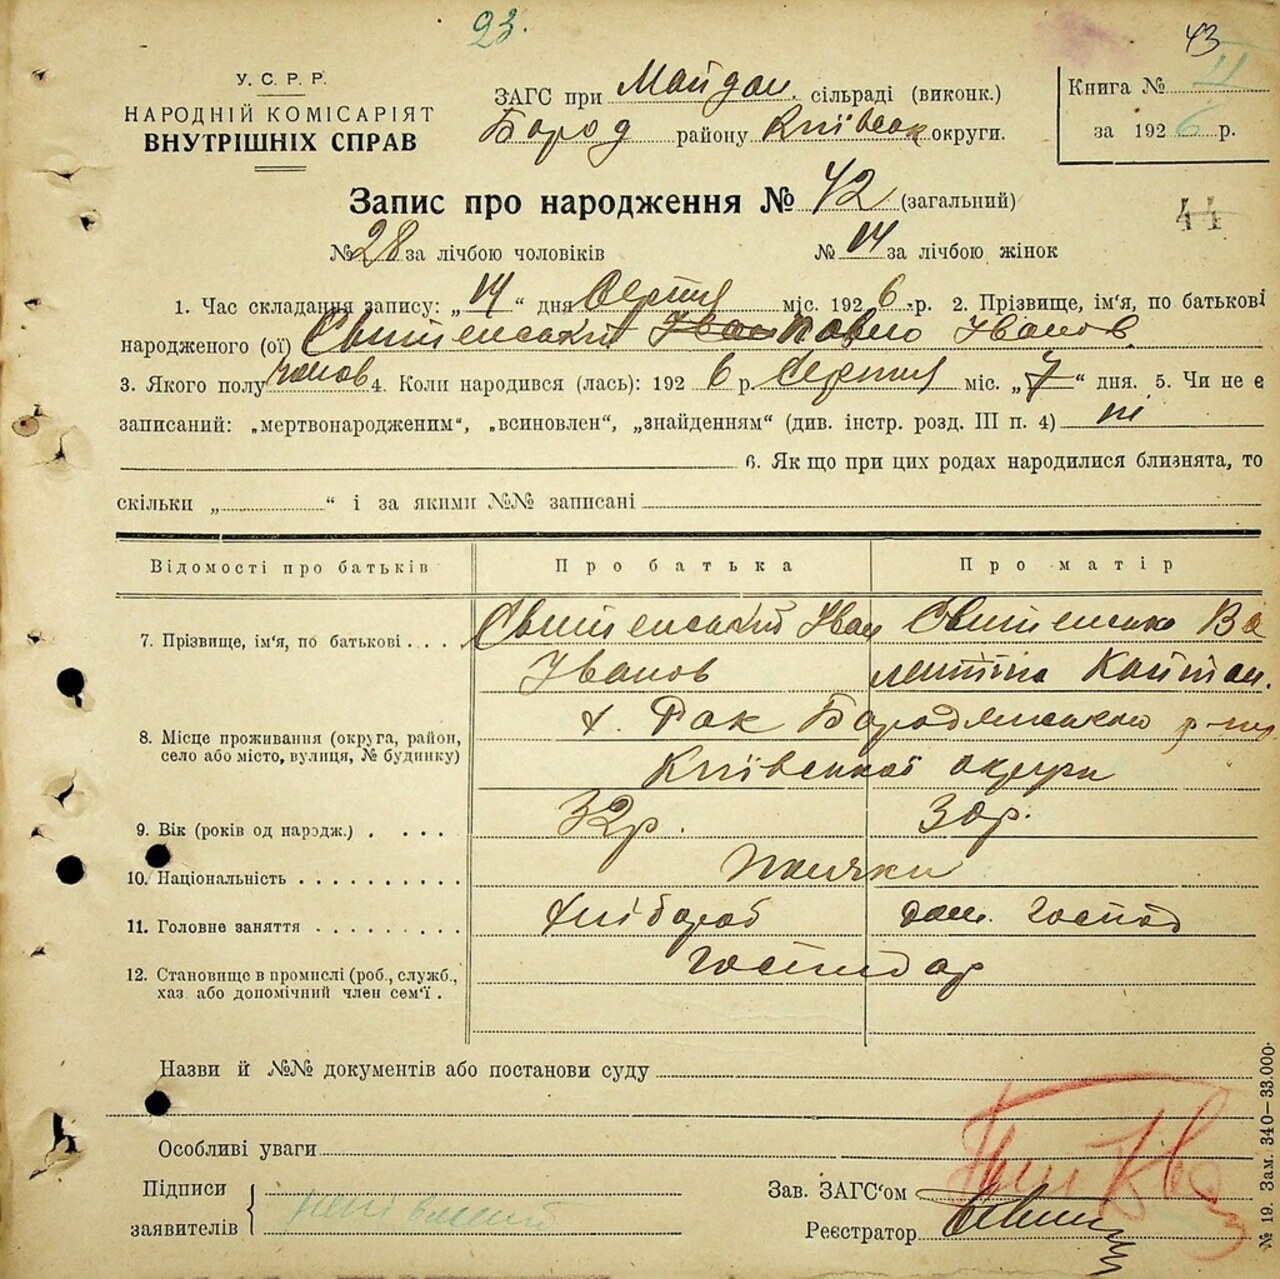 23.
43
У. С. Р. Р.
НАРОДНІЙ КОМІСАРІЯТ
ВНУТРІШНІХ СПРАВ
ЗАГС при Майдан. сільраді (виконк.)
Бород району Київськ округи.
Книга № II
за 1926 р.
Запис про народження № 42 (загальний)
44
№ 28 за лічбою чоловіків № 14 за лічбою жінок
1. Час складання запису: „14“ дня Серпня міс. 1926 р. 2. Прізвище, ім'я, по батькові
народженого (ої) Свитенський Іван Павло Іванов
3. Якого полу чолов 4. Коли народився (лась): 1926 р. Серпня міс. „7“ дня. 5. Чи не є
записаний: „мертвонародженим“, „всиновлен“, „знайденням“ (див. інстр. розд. III п. 4) ні
6. Як що при цих родах народилися близнята, то
скільки „ “ і за якими №№ записані
Відомості про батьків Про батька Про матір
7. Прізвище, ім'я, по батькові . . . . Свитенський Іван Свитенська Ва
Іванов лентіна Кайтан.
8. Місце проживання (округа, район, село або місто, вулиця, № будинку) х. Рак Бородянського р-ну
Київської округи
9. Вік (років од народж.) . . . . 32 р. 30 р.
10. Національність . . . . . . . . . . Поляки
11. Головне заняття . . . . . . . . . хлібороб дом. господ
12. Становище в промислі (роб., служб., господар
хаз. або допомічний член сем'ї .
Назви й №№ документів або постанови суду
Особливі уваги
Підписи
заявителів
Зав. ЗАГС'ом
Реєстратор
№ 19. Зам. 340—33.000.